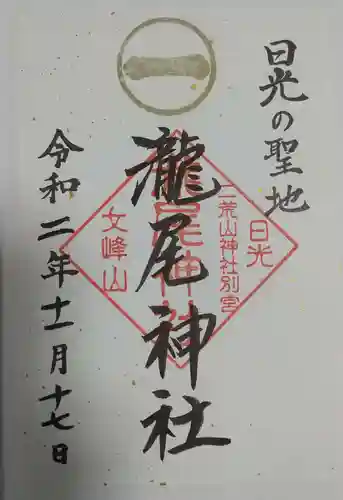 日光の聖地
一
龍尾神社
日光
二荒山神社別宮
女峰山
令和二年十一月十七日